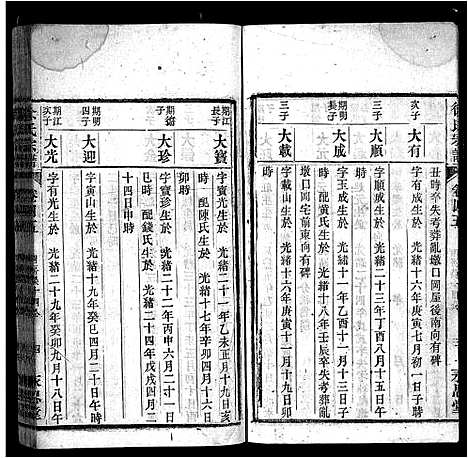 徐氏宗譜
卷四五
丑時卒失考葬亂墩口岡屋後南向有碑
次子
大有
字有成生於 光緒十六年庚寅七月初一日子時
大順
字正順生於 光緒十三年丁酉八月十五日
期明長子
大成
字玉成生於 光緒十一年乙酉十一月十一日辰時
配黃氏生於 光緒十八年壬辰卒失考葬亂
墩口宅前東向有碑
三子
大載
字載山生於 光緒十六年庚寅十一月十九日卯時
永思堂
期江長子
大寶
字寶光生於 光緒二十一年乙未正月十九日亥
時 配陳氏生於 光緒十七年辛卯四月十六日
卯時
期繪子
大珍
字寶珍生於 光緒二十二年丙申六月二十一日
巳時 配錢氏生於 光緒二十四年戊戌四月二
十四日申時
期明四子
大迎
字寅山生於 光緒十九年癸巳四月二十日午時
期江次子
大光
字有光生於 光緒二十九年癸卯九月十八日午
徐氏宗譜
卷四五
四
永思堂